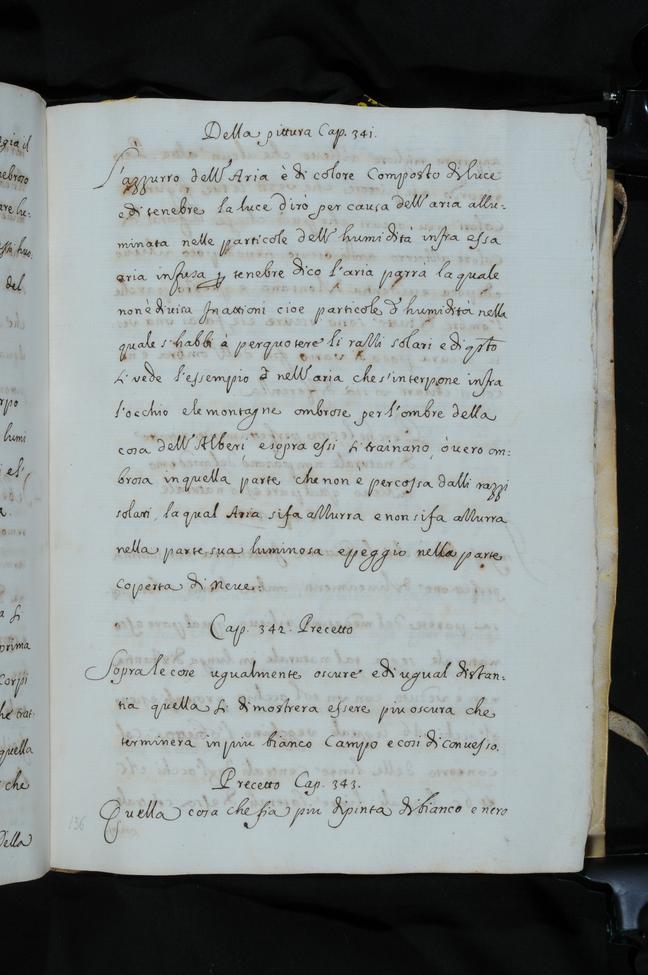 Della pittura Cap. 341.
L'azzurro dell'Aria è di colore Composto di luce
e di tenebre la luce dirò per causa dell'aria allu-
minata nelle particole dell'humidità infra essa
aria infusa tenebre dico l'aria parra la quale
non è divisa Inattioni cioe particole d'humidità nella
quale s'habbi a perquotere li rassi solari e di qsto
si vede l'essempio nell'aria che s'interpone infra
l'occhio e le montagne ombrose per l'ombre della
cosa dell'Alberi e sopra essi si trainano, o vero om-
brosa in quella parte che non e percossa dalli razzi
solari, la qual Aria si fa assurra e non si fa assurra
nella parte sua luminosa e peggio nella parte
coperta di neve.
Cap. 342. Precetto
Sopra le cose ugualmente oscure e di ugual distan-
tia quella si dimostrera essere piu oscura che
terminera in piu bianco Campo e cosi di convesso.
Precetto Cap. 343.
Quella cosa che fia piu dipinta di bianco e nero
136